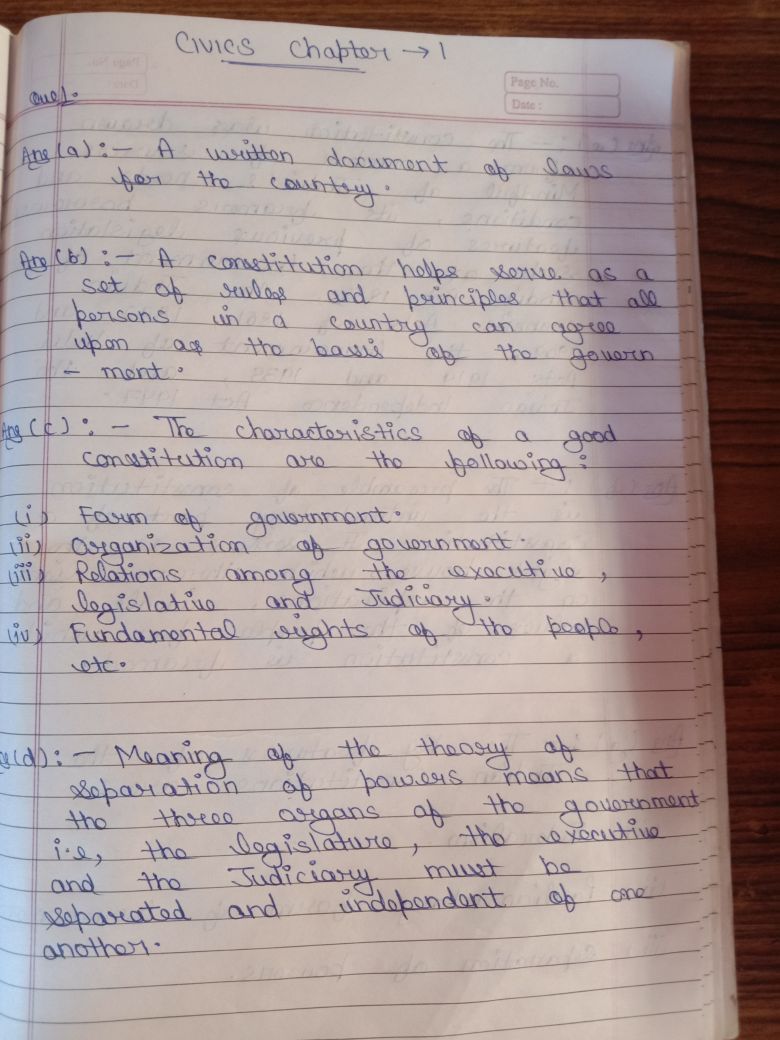 CIVICS Chapter → 1
Page No.
Date :
Que1.
Ans (a) :- A written document of laws
for the country.
Ans (b) :- A constitution helps serve as a
set of rules and principles that all
persons in a country can agree
upon as the basis of the govern
- ment.
Ans (c) :- The characteristics of a good
constitution are the following :
(i) Farm of government.
(ii) Organization of government.
(iii) Relations among the executive,
legislative and Judiciary.
(iv) Fundamental rights of the people,
etc.
(d) :- Meaning of the theory of
separation of powers means that
the three organs of the government
i.e, the legislature, the executive
and the Judiciary must be
separated and independent of one
another.